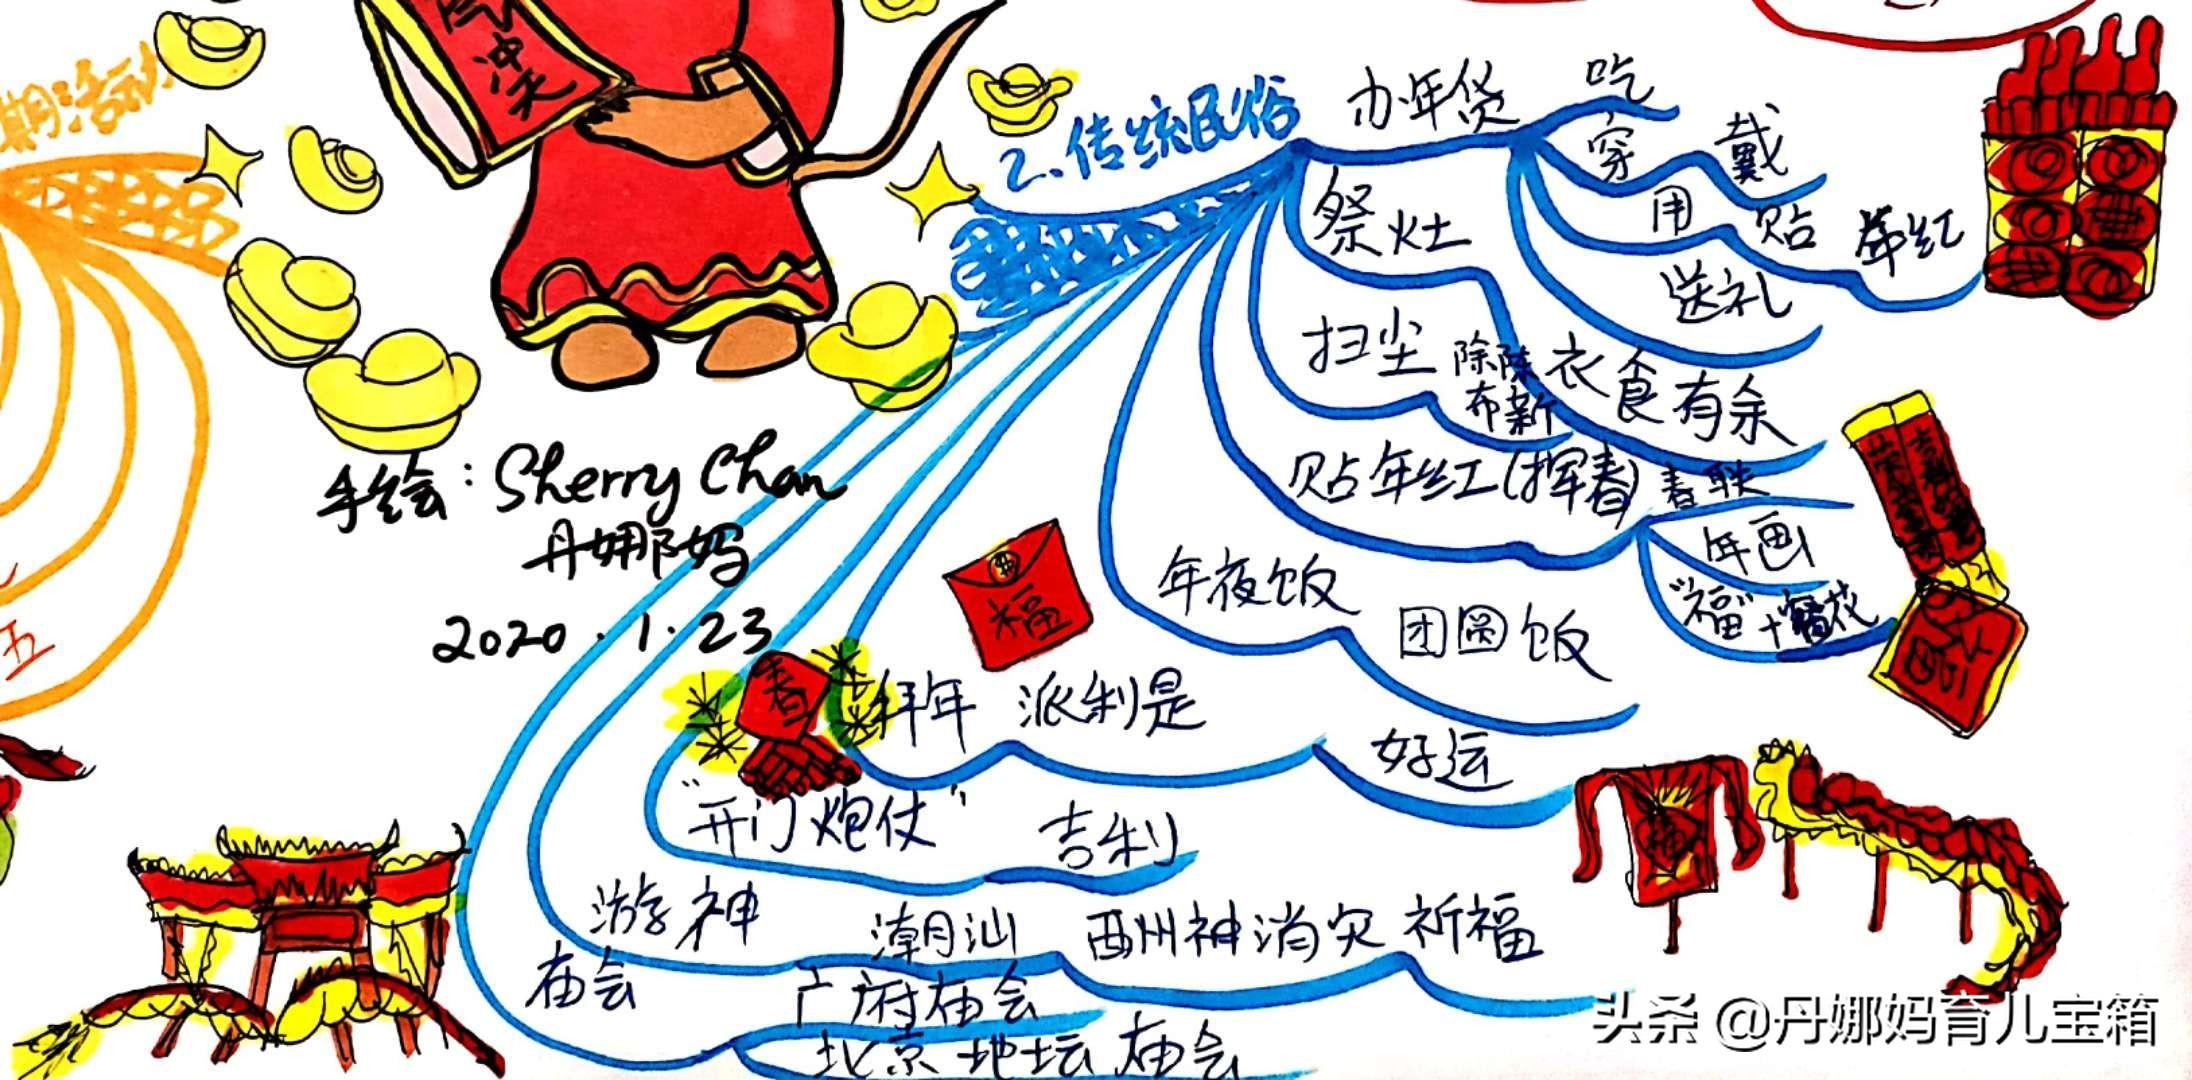 冲天
期活动
2.传统民俗
办年货
吃
穿
戴
用
贴
年红
送礼
祭灶
衣食有余
扫尘
除陈
布新
贴年红(挥春)
春联
年画
"福"+窗花
年夜饭
团圆饭
福
拜年
派利是
好运
春
"开门炮仗"
吉利
游神
潮汕
酬神消灾
祈福
庙会
广府庙会
北京地坛庙会
手绘:Sherry Chan
丹娜妈
2020.1.23
五
头条 @丹娜妈育儿宝箱